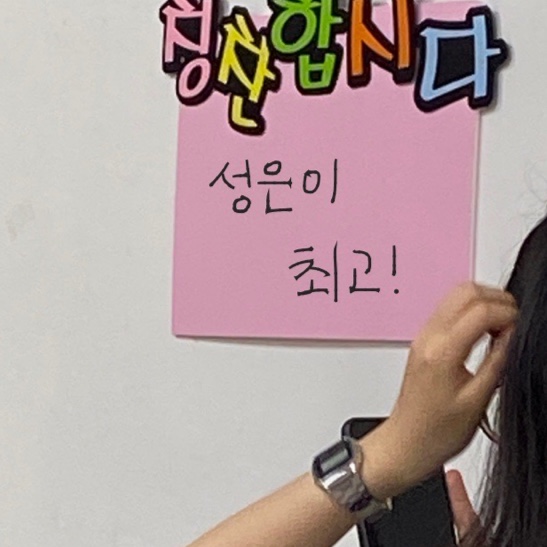 칭찬합시다
성은이
최고!